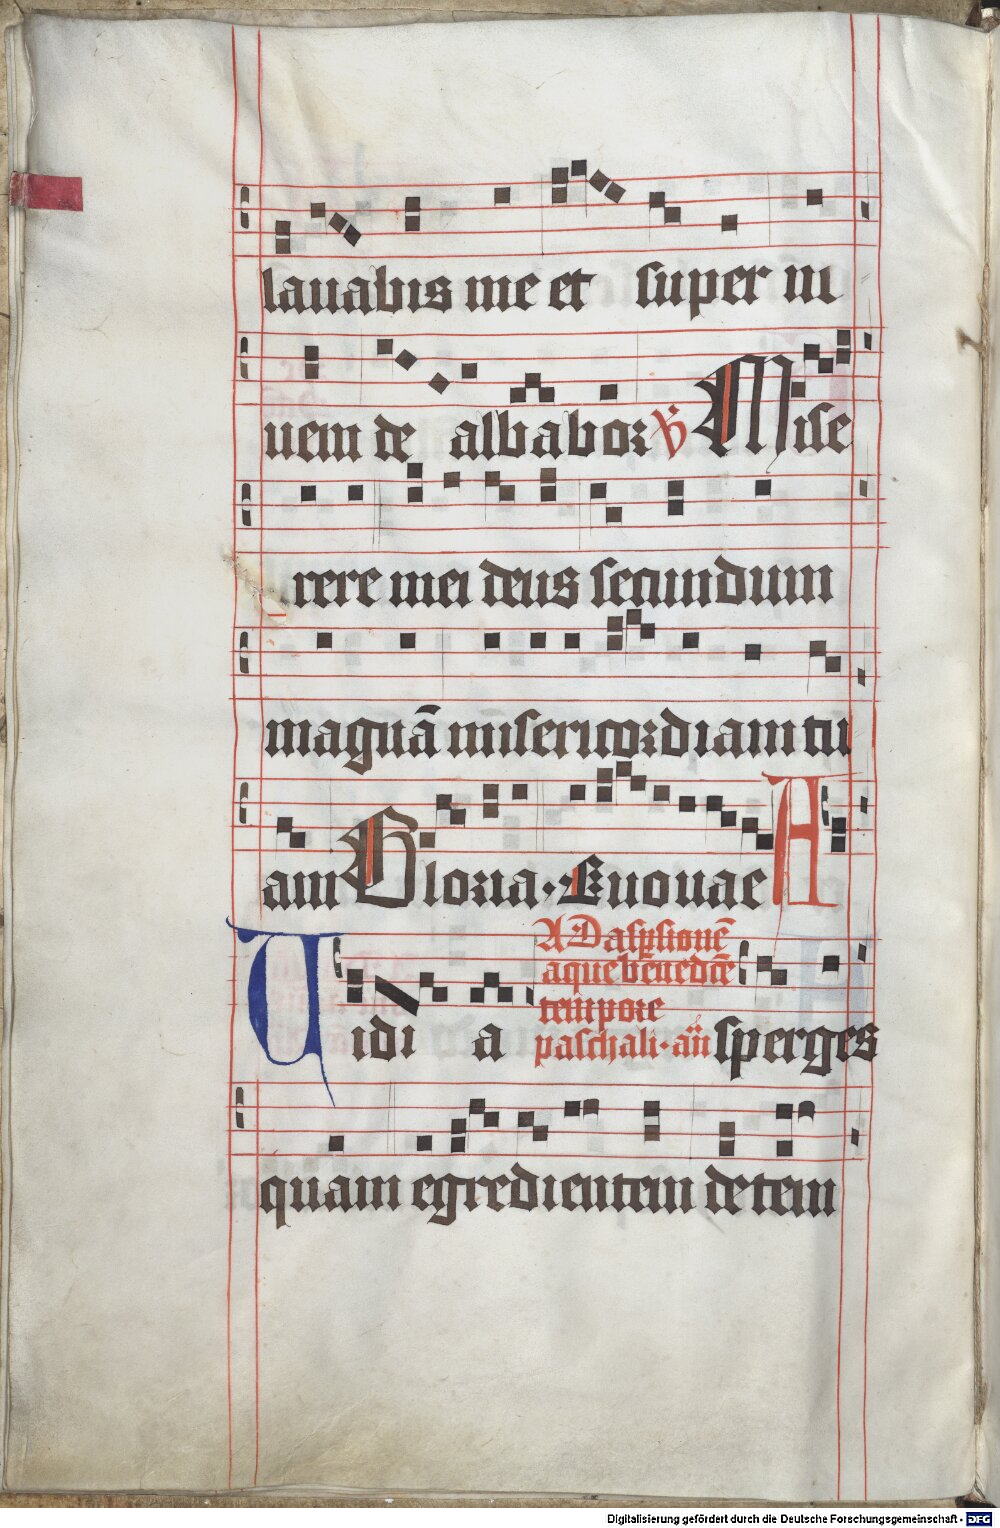 lauabis me et super ni
uem de albabor ℣ Mise
rere mei deus secundum
magnā misericordiam tu
am Gloria · Euouae A
Uidi a
AD aspsionē
aque bēnedcē
tempore
paschali · añ
sperges
quam egredientem de tem
Digitalisierung gefördert durch die Deutsche Forschungsgemeinschaft - DFG